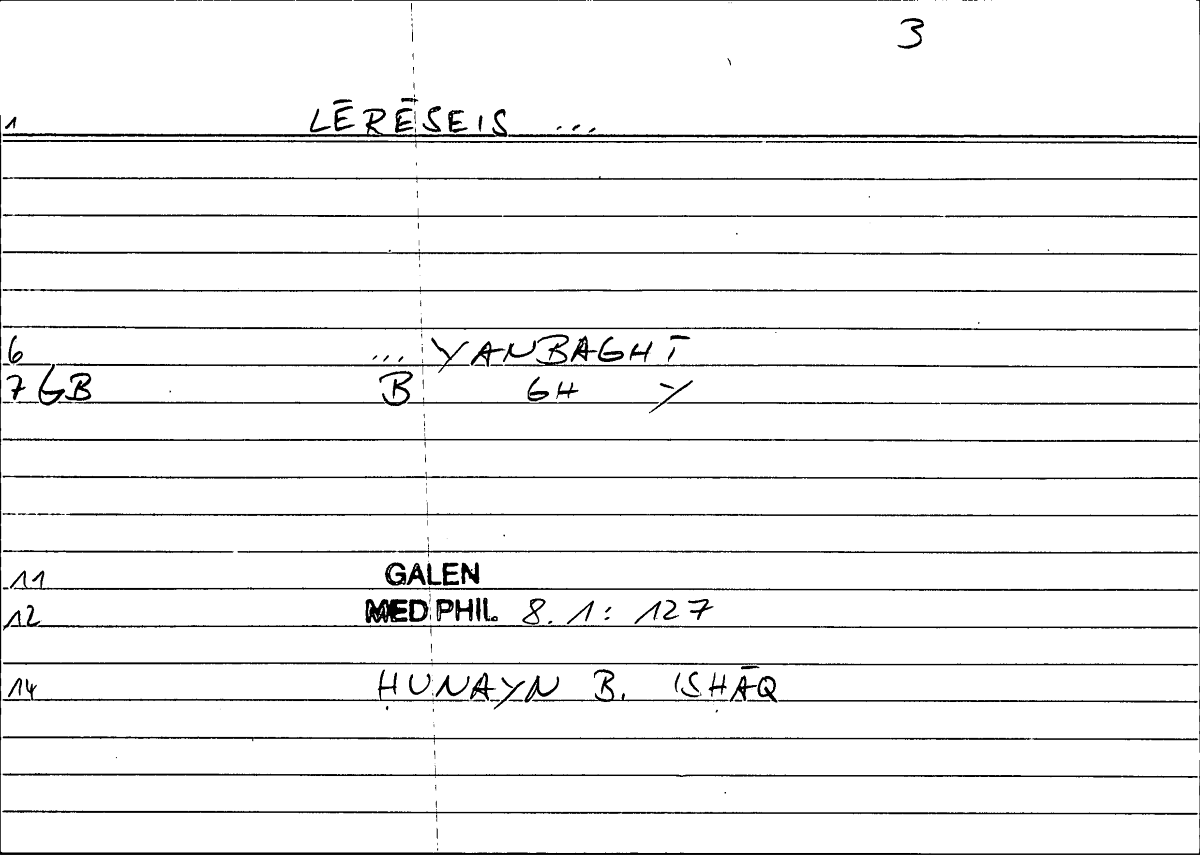 3
1 LĒRĒSEIS ...
6 ... YANBAGHĪ
7 GB B GH Y
11 GALEN
12 MED PHIL. 8.1: 127
14 ḤUNAYN B. ISḤĀQ